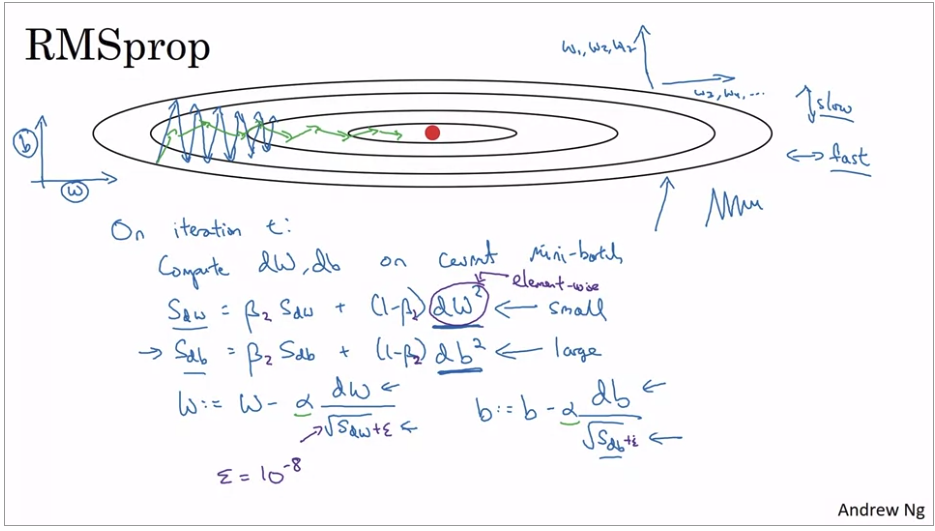 RMSprop
w₁, w₂, w₂
w₃, w₄, ...
slow
fast
b
w
On iteration t:
Compute dW, db on current mini-batch
element-wise
S_dw = β₂ S_dw + (1-β₂) dW² ← small
→ S_db = β₂ S_db + (1-β₂) db² ← large
W := W - α dW / √S_dW + ε ← b := b - α db / √S_db + ε ←
ε = 10⁻⁸
Andrew Ng